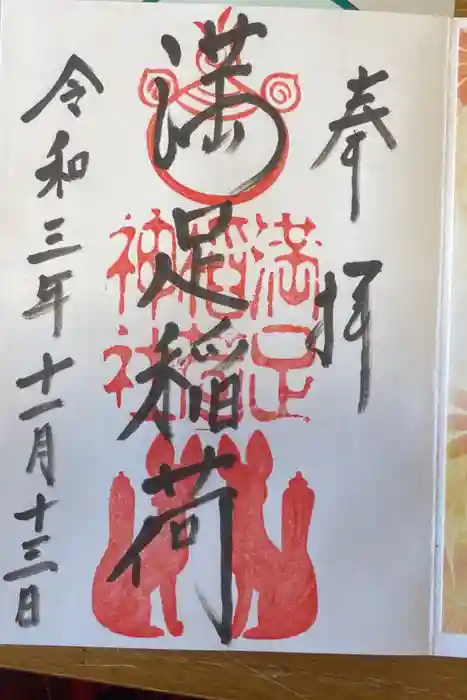 奉拝
満足稲荷
満足
稲荷
神社
令和三年十一月十三日